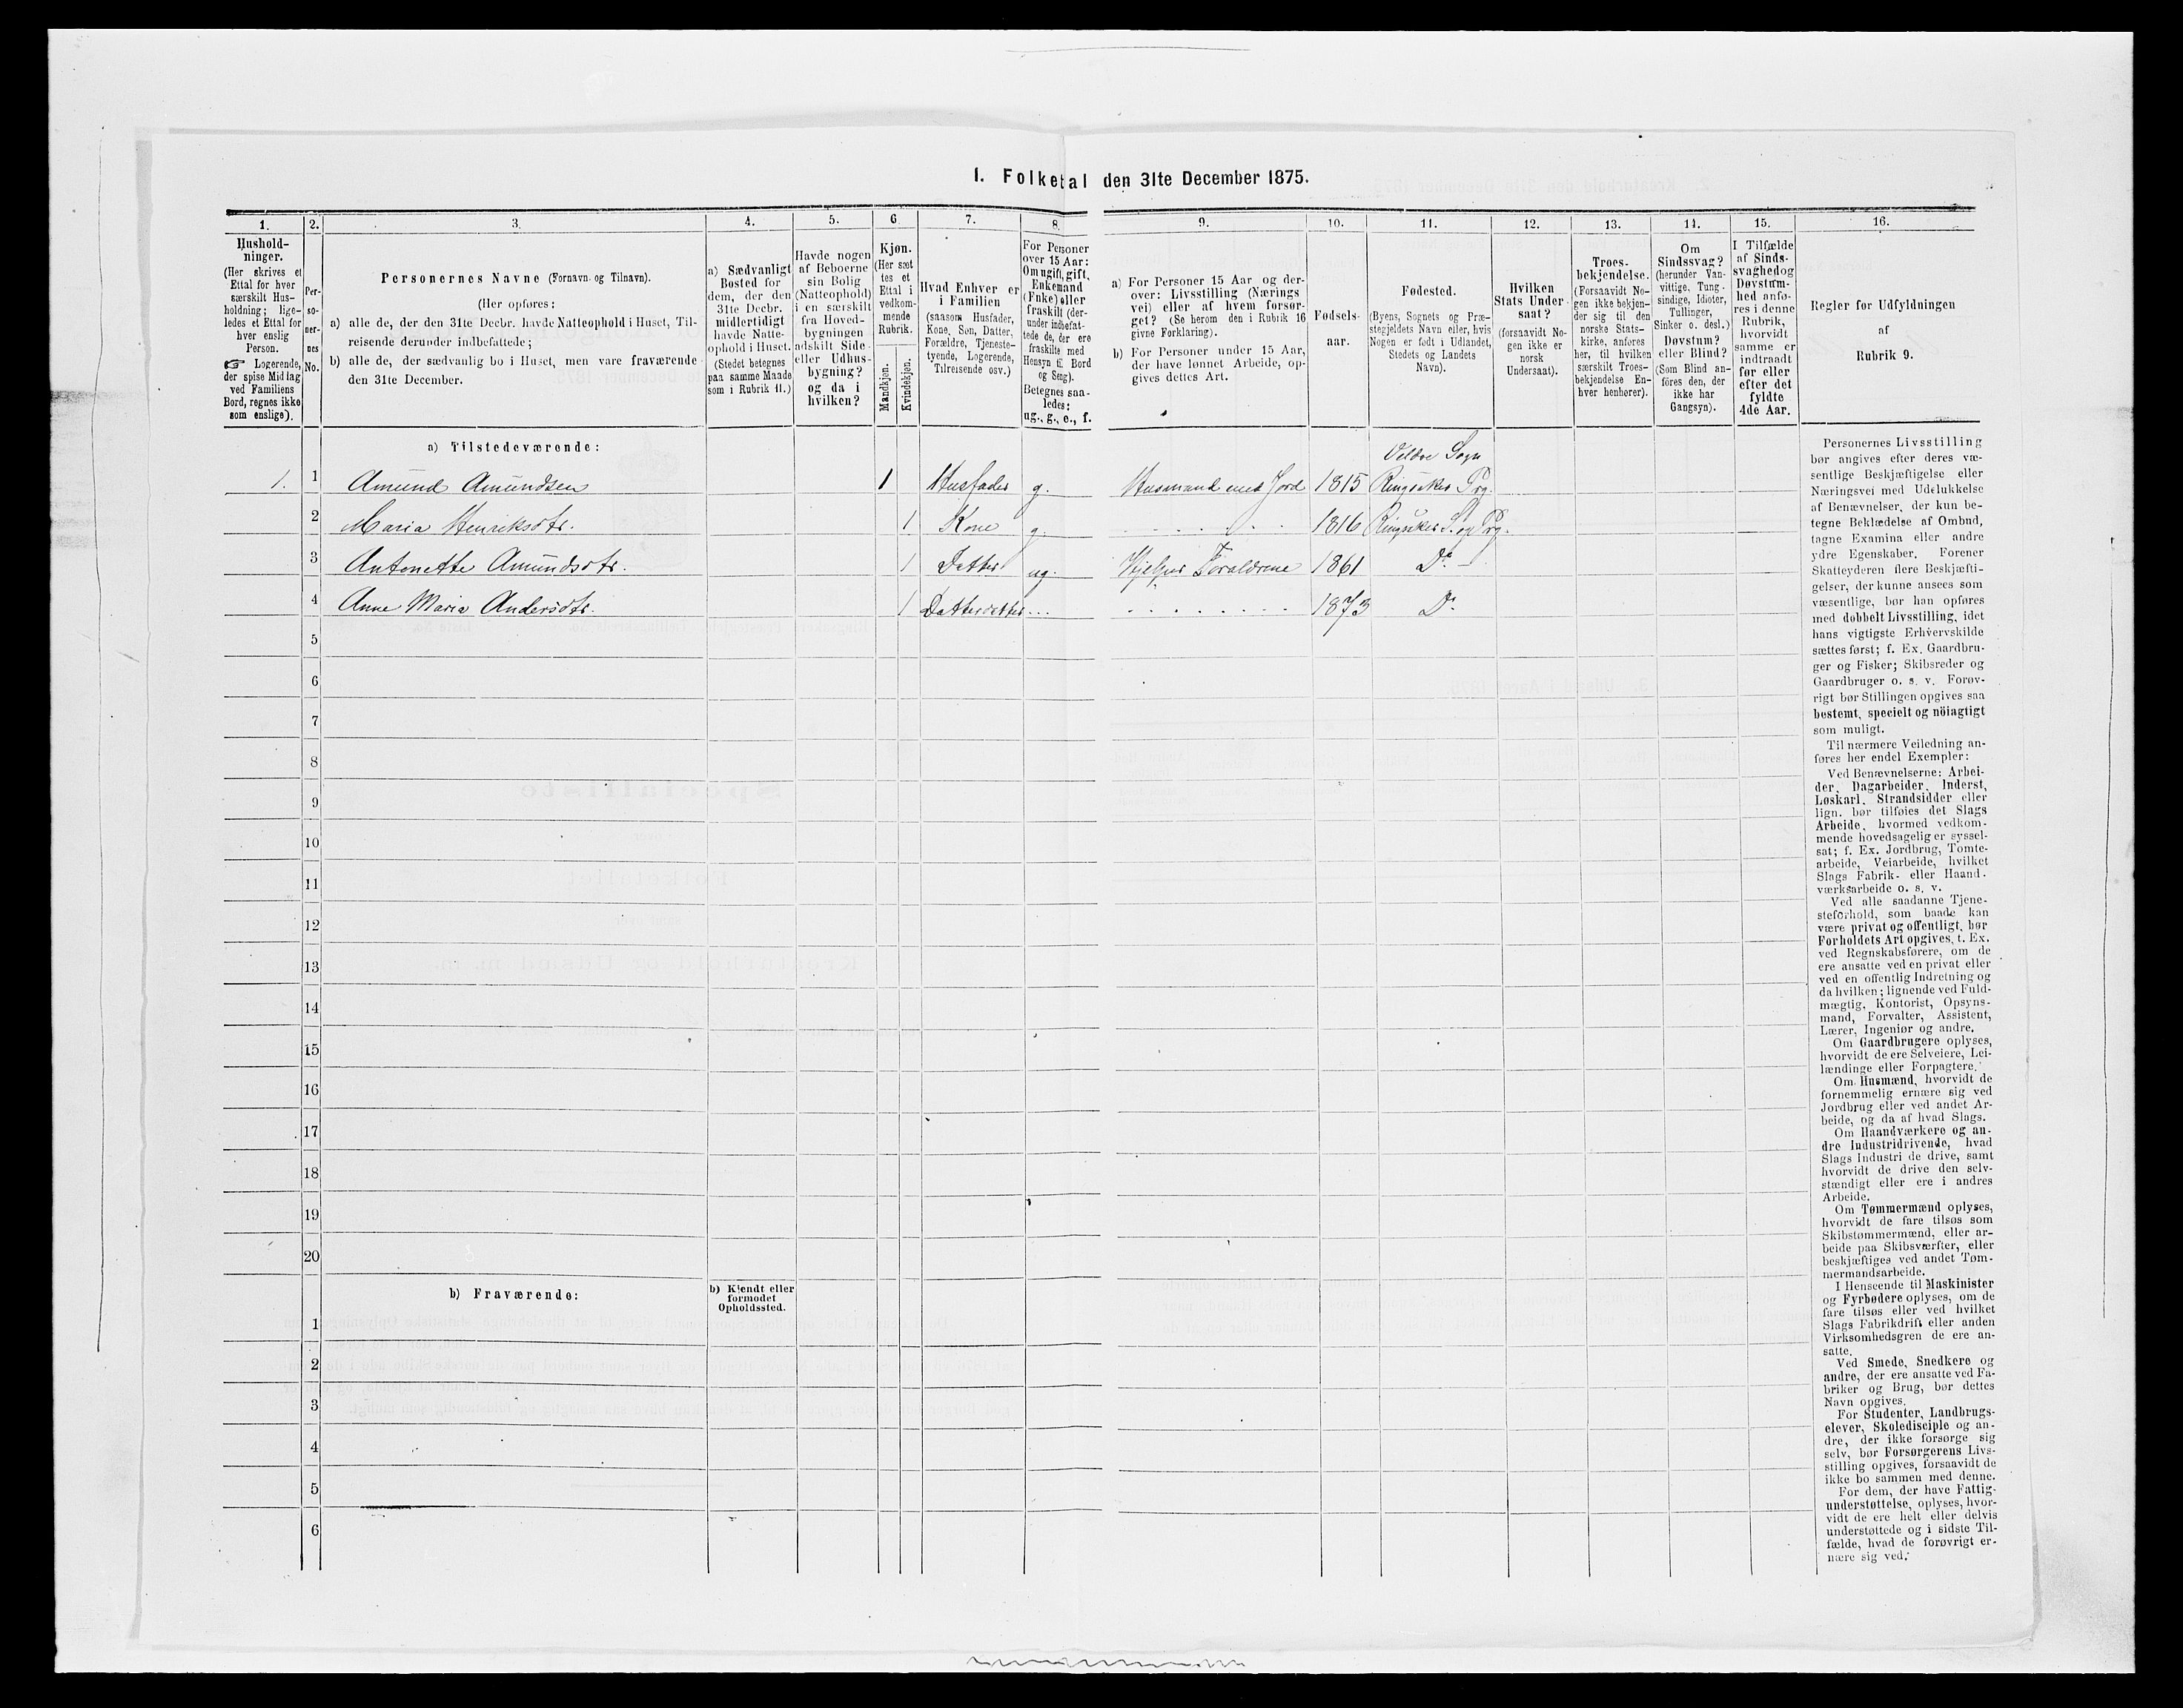 1. Folketal den 31te December 1875.
1. 2. 3. 4. 5. 6. 7. 8. 9. 10. 11. 12. 13. 14. 15. 16.
Hushold-
ninger.
(Her skrives et
Ettal for hver
særskilt Hus-
holdning; lige-
ledes et Ettal for
hver enslig
Person.
☞ Logerende,
der spise Middag
ved Familiens
Bord, regnes ikke
som enslige).
Per-
so-
ner-
nes
No.
Personernes Navne (Fornavn og Tilnavn).
(Her opføres:
a) alle de, der den 31te Decbr. havde Natteophold i Huset, Til-
reisende derunder indbefattede;
b) alle de, der sædvanlig bo i Huset, men vare fraværende
den 31te December.
a) Sædvanligt
Bosted for
dem, der den
31te Decbr.
midlertidigt
havde Natte-
ophold i Huset.
(Stedet betegnes
paa samme Maade
som i Rubrik 11.)
Havde nogen
af Beboerne
sin Bolig
(Natteophold)
i en særskilt
fra Hoved-
bygningen
adskilt Side-
eller Udhus-
bygning?
og da i
hvilken?
Kjøn.
(Her sæt
tes et
Ettal i
vedkom-
mende
Rubrik.
Mandkjøn.
Kvindekjøn.
Hvad Enhver er
i Familien
(saasom Husfader,
Kone, Søn, Datter,
Forældre, Tjeneste-
tyende, Logerende,
Tilreisende osv.)
For Personer
over 15 Aar:
Om ugift, gift,
Enkemand
(Enke) eller
fraskilt (der-
under indbefat-
tede de, der ere
fraskilte med
Hensyn til Bord
og Seng).
Betegnes saa-
ledes:
ug., g., e., f.
a) For Personer 15 Aar og der-
over: Livsstilling (Nærings
vei) eller af hvem forsør-
get? (Se herom den i Rubrik 16
givne Forklaring).
b) For Personer under 15 Aar,
der have lønnet Arbeide, op-
gives dettes Art.
Fødsels-
aar.
Fødested.
(Byens, Sognets og Præ-
stegjeldets Navn eller, hvis
Nogen er født i Udlandet,
Stedets og Landets
Navn).
Hvilken
Stats Under-
saat?
(forsaavidt No-
gen ikke er
norsk
Undersaat).
Troes-
bekjendelse.
(Forsaavidt No-
gen ikke bekjen-
der sig til den
norske Stats-
kirke, anføres
her, til hvilken
særskilt Troes-
bekjendelse En-
hver henhører).
Om
Sindssvag?
(herunder Van-
vittige, Tung-
sindige, Idioter,
Tullinger,
Sinker o. desl.)
Døvstum?
eller Blind?
(Som Blind an-
føres den, der
ikke har
Gangsyn).
I Tilfælde
af Sinds-
svaghed og
Døvstum-
hed anfø-
res i denne
Rubrik,
hvorvidt
samme er
indtraadt
før eller
efter det
fyldte
4de Aar.
Regler for Udfyldningen
af
Rubrik 9.
a) Tilstedeværende:
Veldre Sogn
1. 1 Amund Amundsen 1 Husfader g. Husmand med Jord 1815 Ringsaker Prg.
2 Maria Henriksdtr. 1 Kone g. 1816 Ringsaker S. og Prg.
3 Antonette Amundsdtr. 1 Datter ug. Hjelper Forældrene 1861 Do
4 Anne Maria Andersdtr. 1 Datterdatter 1873 Do
5
6
7
8
9
10
11
12
13
14
15
16
17
18
19
20
b) Fraværende:
b) Kjendt eller
formodet
Opholdssted.
1
2
3
4
5
6
Personernes Livsstilling
bør angives efter deres væ-
sentlige Beskjæftigelse eller
Næringsvei med Udelukkelse
af Benævnelser, der kun be-
tegne Beklædelse af Ombud,
tagne Examina eller andre
ydre Egenskaber. Forener
Skatteyderen flere Beskjæfti-
gelser, der kunne ansees som
væsentlige, bør han opføres
med dobbelt Livsstilling, idet
hans vigtigste Erhvervskilde
sættes først; f. Ex. Gaardbru-
ger og Fisker; Skibsreder og
Gaardbruger o. s. v. Forøv-
rigt bør Stillingen opgives saa
bestemt, specielt og nöiagtigt
som muligt.
Til nærmere Veiledning an-
føres her endel Exempler:
Ved Benævnelserne: Arbei-
der, Dagarbeider, Inderst,
Løskarl, Strandsidder eller
lign. bør tilføies det Slags
Arbeide, hvormed vedkom-
mende hovedsagelig er syssel-
sat; f. Ex. Jordbrug, Tomte-
arbeide, Veiarbeide, hvilket
Slags Fabrik- eller Haand-
værksarbeide o. s. v.
Ved alle saadanne Tjene-
steforhold, som baade kan
være privat og offentligt, bør
Forholdets Art opgives, t. Ex.
ved Regnskabsførere, om de
ere ansatte ved en privat eller
ved en offentlig Indretning og
da hvilken; lignende ved Fuld-
mægtig, Kontorist, Opsyns-
mand, Forvalter, Assistent,
Lærer, Ingeniør og andre.
Om Gaardbrugere oplyses,
hvorvidt de ere Selveiere, Lei-
lændinge eller Forpagtere.
Om Husmænd, hvorvidt de
fornemmelig ernære sig ved
Jordbrug eller ved andet Ar-
beide, og da af hvad Slags.
Om Haandværkere og an-
dre Industridrivende, hvad
Slags Industri de drive, samt
hvorvidt de drive den selv-
stændigt eller ere i andres
Arbeide.
Om Tømmermænd oplyses,
hvorvidt de fare tilsøs som
Skibstømmermænd, eller ar-
beide paa Skibsværfter, eller
beskjæftiges ved andet Tøm-
mermandsarbeide.
I Henseende til Maskinister
og Fyrbødere oplyses, om de
fare tilsøs eller ved hvilket
Slags Fabrikdrift eller anden
Virksomhedsgren de ere an-
satte.
Ved Smede, Snedkere og
andre, der ere ansatte ved Fa-
briker og Brug, bør dettes
Navn opgives.
For Studenter, Landbrugs-
elever, Skoledisciple og an-
dre, der ikke forsørge sig
selv, bør Forsørgerens Livs-
stilling opgives, forsaavidt de
ikke bo sammen med denne.
For dem, der have Fattig-
understøttelse, oplyses, hvor-
vidt de ere helt eller delvis
understøttede og i sidste Til-
fælde, hvad de forøvrigt er-
nære sig ved.